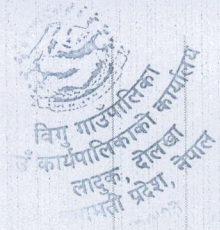 विगु गाउँपालिका
कार्यपालिकाको कार्यालय
लादुक, दोलखा
प्रदेश, नेपाल